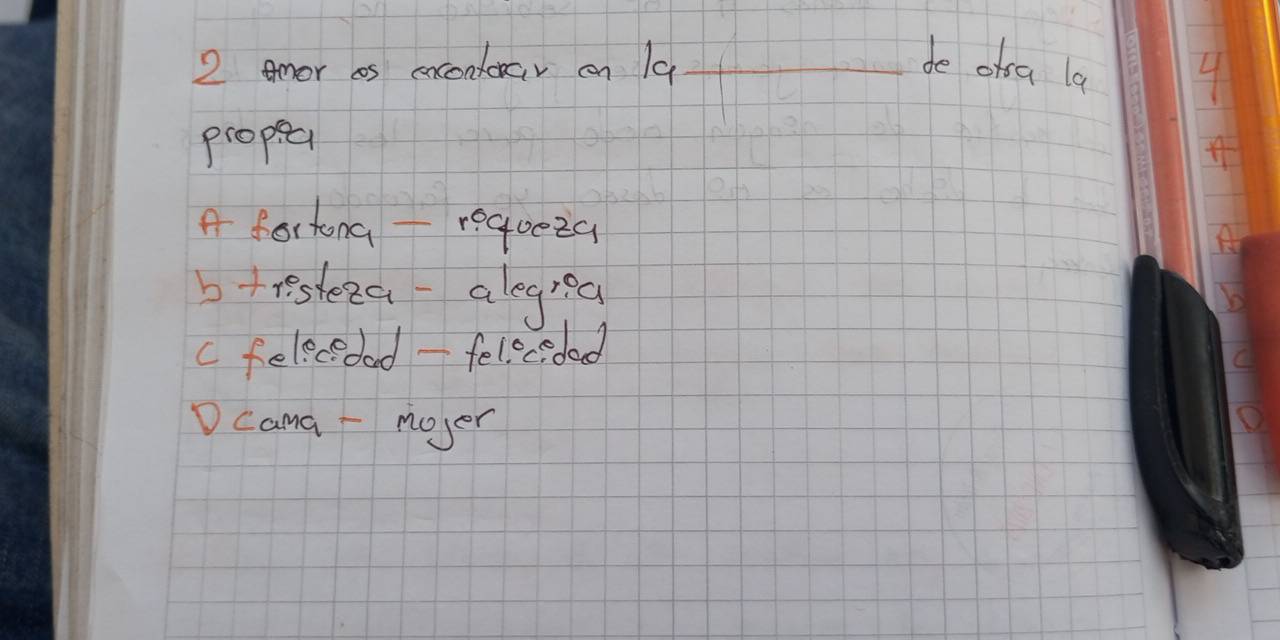 2 Amor es encontrar en la __________ de otra la
propia
A fortuna – riqueza
b tristeza – alegria
c felicidad – felicidad
D cama – mujer
4
A
A
b
C
D